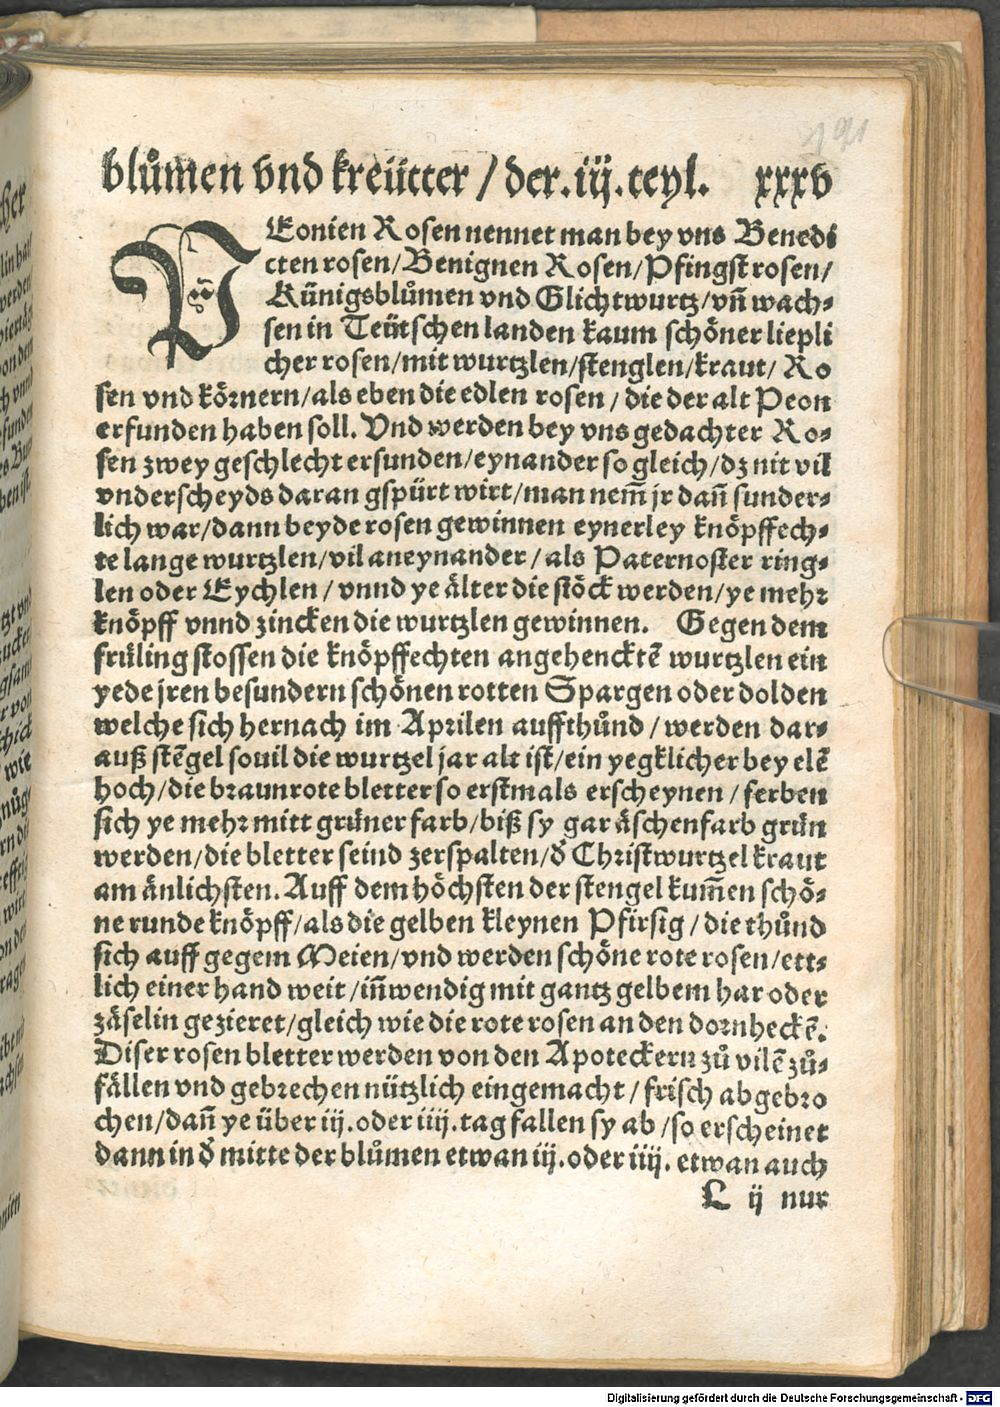 191
blůmen vnd kreütter / der.iij.teyl. xxxv
PEonien Rosen nennet man bey vns Benedi
cten rosen/Benignen Rosen/Pfingstrosen/
Künigsblůmen vnd Glichtwurtz/vñ wach⸗
sen in Teütschen landen kaum schöner liepli
cher rosen/mit wurtzlen/stenglen/kraut/ Ro
sen vnd körnern/als eben die edlen rosen / die der alt Peon
erfunden haben soll. Vnd werden bey vns gedachter Ro⸗
sen zwey geschlecht ersunden/eynander so gleich/dz nit vil
vnderscheyds daran gspürt wirt/man nem̃ jr dañ sunder⸗
lich war/dann beyde rosen gewinnen eynerley knöpffech⸗
te lange wurtzlen/vil aneynander / als Paternoster ring⸗
len oder Eychlen / vnnd ye älter die stöck werden/ye mehr
knöpff vnnd zincken die wurtzlen gewinnen. Gegen dem
früling stossen die knöpffechten angehencktẽ wurtzlen ein
yede jren besundern schönen rotten Spargen oder dolden
welche sich hernach im Aprilen auffthůnd / werden dar⸗
auß stẽgel souil die wurtzel jar alt ist/ein yegklicher bey elẽ
hoch/die braunrote bletter so erstmals erscheynen / ferben
sich ye mehr mitt grüner farb/biß sy gar äschenfarb grün
werden/die bletter seind zerspalten/d̕ Christwurtzel kraut
am änlichsten. Auff dem höchsten der stengel kum̃en schö⸗
ne runde knöpff/als die gelben kleynen Pfirsig / die thůnd
sich auff gegem Meien/vnd werden schöne rote rosen/ett⸗
lich einer hand weit /iñwendig mit gantz gelbem har oder
zäselin gezieret/gleich wie die rote rosen an den dornheckẽ.
Diser rosen bletter werden von den Apoteckern zů vilẽ zů⸗
fällen vnd gebrechen nützlich eingemacht / frisch abgebro
chen/dañ ye über iij.oder iiij.tag fallen sy ab /so erscheinet
dann in d̕ mitte der blůmen etwan iij.oder iiij. etwan auch
L ij nur
Digitalisierung gefördert durch die Deutsche Forschungsgemeinschaft - DFG